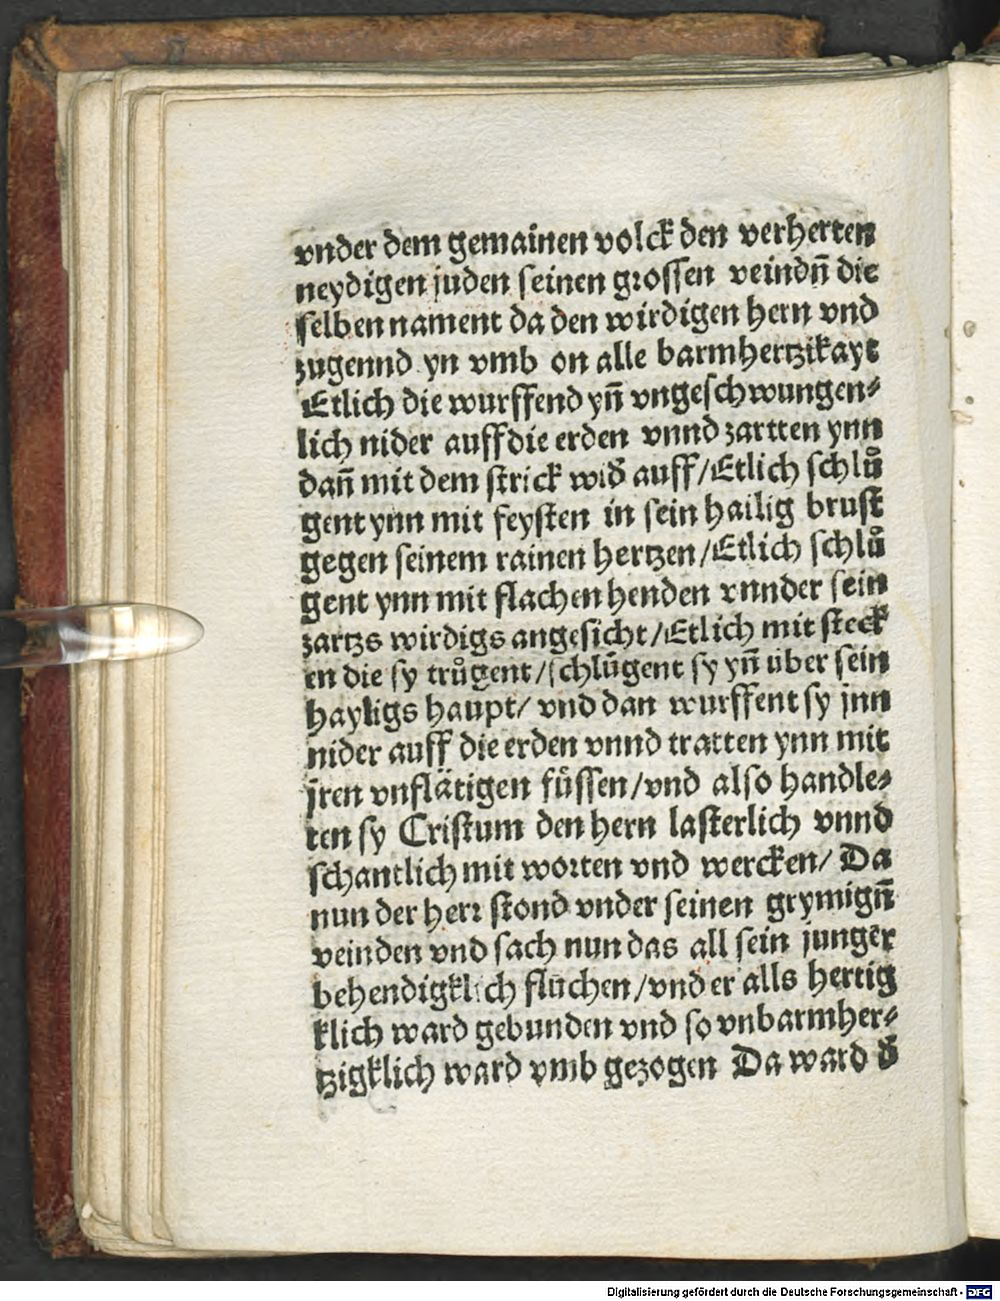 vnder dem gemainen volck den verherten
neydigen juden seinen grossen veindn̄ die
selben nament da den wirdigen hern vnd
zugennd yn vmb on alle barmhertzikayt
Etlich die wurffend yn̄ vngeschwungen⸗
lich nider auff die erden vnnd zartten ynn
dan̄ mit dem strick wid̄ auff/Etlich schlů
gent ynn mit feysten in sein hailig brust
gegen seinem rainen hertzen/Etlich schlů
gent ynn mit flachen henden vnnder sein
zartzs wirdigs angesicht/Etlich mit steck
en die sy trůgent/schlůgent sy yn̄ über sein
hayligs haupt/ vnd dan wurffent sy jnn
nider auff die erden vnnd tratten ynn mit
jren vnflätigen fůssen/vnd also handle⸗
ten sy Cristum den hern lasterlich vnnd
schantlich mit worten vnd wercken/ Da
nun der herr stond vnder seinen grymign̄
veinden vnd sach nun das all sein jungēr
behendigklich fluchen/vnd er alls hertig
klich ward gebunden vnd so vnbarmher⸗
tzigklich ward vmb gezogen Da ward d̄
Digitalisierung gefördert durch die Deutsche Forschungsgemeinschaft - DFG